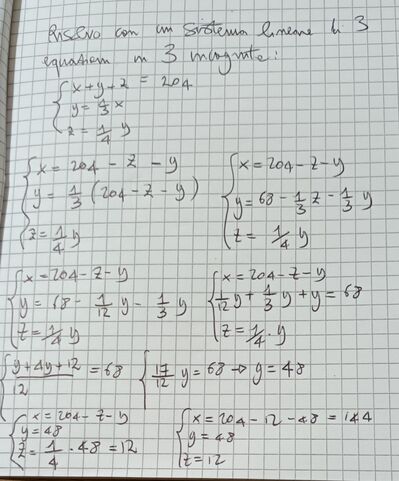 Risolvo con un sistema lineare di 3
equazioni in 3 incognite:
x+y+z = 204
y = 1/3 x
z = 1/4 y
x = 204 - z - y
y = 1/3 (204 - z - y)
z = 1/4 y
x = 204 - z - y
y = 68 - 1/3 z - 1/3 y
z = 1/4 y
x = 204 - z - y
y = 68 - 1/12 y - 1/3 y
z = 1/4 y
x = 204 - z - y
1/12 y + 1/3 y + y = 68
z = 1/4 · y
y + 4y + 12 / 12 = 68
17/12 y = 68 → y = 48
x = 204 - z - y
y = 48
z = 1/4 · 48 = 12
x = 204 - 12 - 48 = 144
y = 48
z = 12